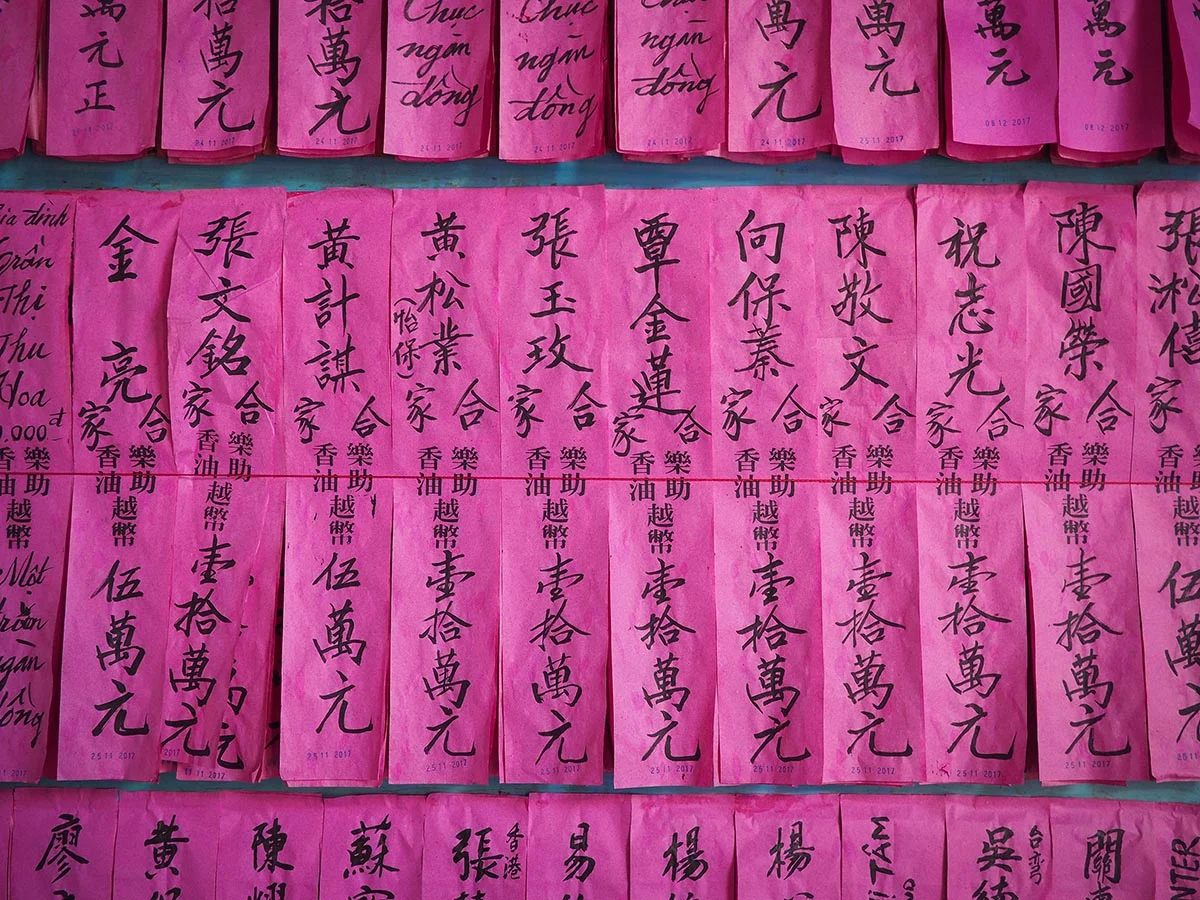 萬元正
24 11 2017
拾萬元
24 11 2017
拾萬元
24 11 2017
Chục
ngàn
đồng
24 11 2017
Chục
ngàn
đồng
24 11 2017
ngàn
đồng
24 11 2017
萬元
24 11 2017
萬元
25 11 2017
萬元
08 12 2017
萬元
08 12 2017
Gia đình
Trần
Thị
Thu
Hoa
樂助香油越幣
Một
ngàn
đồng
金亮合家
樂助香油越幣
伍萬元
25 11 2017
張文銘合家
樂助香油越幣
壹拾萬元
11 11 2017
黃計謀合家
樂助香油越幣
伍萬元
25 11 2017
黃松業(怡保)合家
樂助香油越幣
壹拾萬元
25 11 2017
張玉玫合家
樂助香油越幣
壹拾萬元
25 11 2017
覃金蓮合家
樂助香油越幣
壹拾萬元
25 11 2017
向保蓁合家
樂助香油越幣
壹拾萬元
25 11 2017
陳敬文合家
樂助香油越幣
壹拾萬元
25 11 2017
祝志光合家
樂助香油越幣
壹拾萬元
25 11 2017
陳國榮合家
樂助香油越幣
壹拾萬元
25 11 2017
張淞僖家
樂助香油越幣
伍萬元
廖
黃
陳耀
蘇
張
香港
易
楊
楊
吳
台灣
關